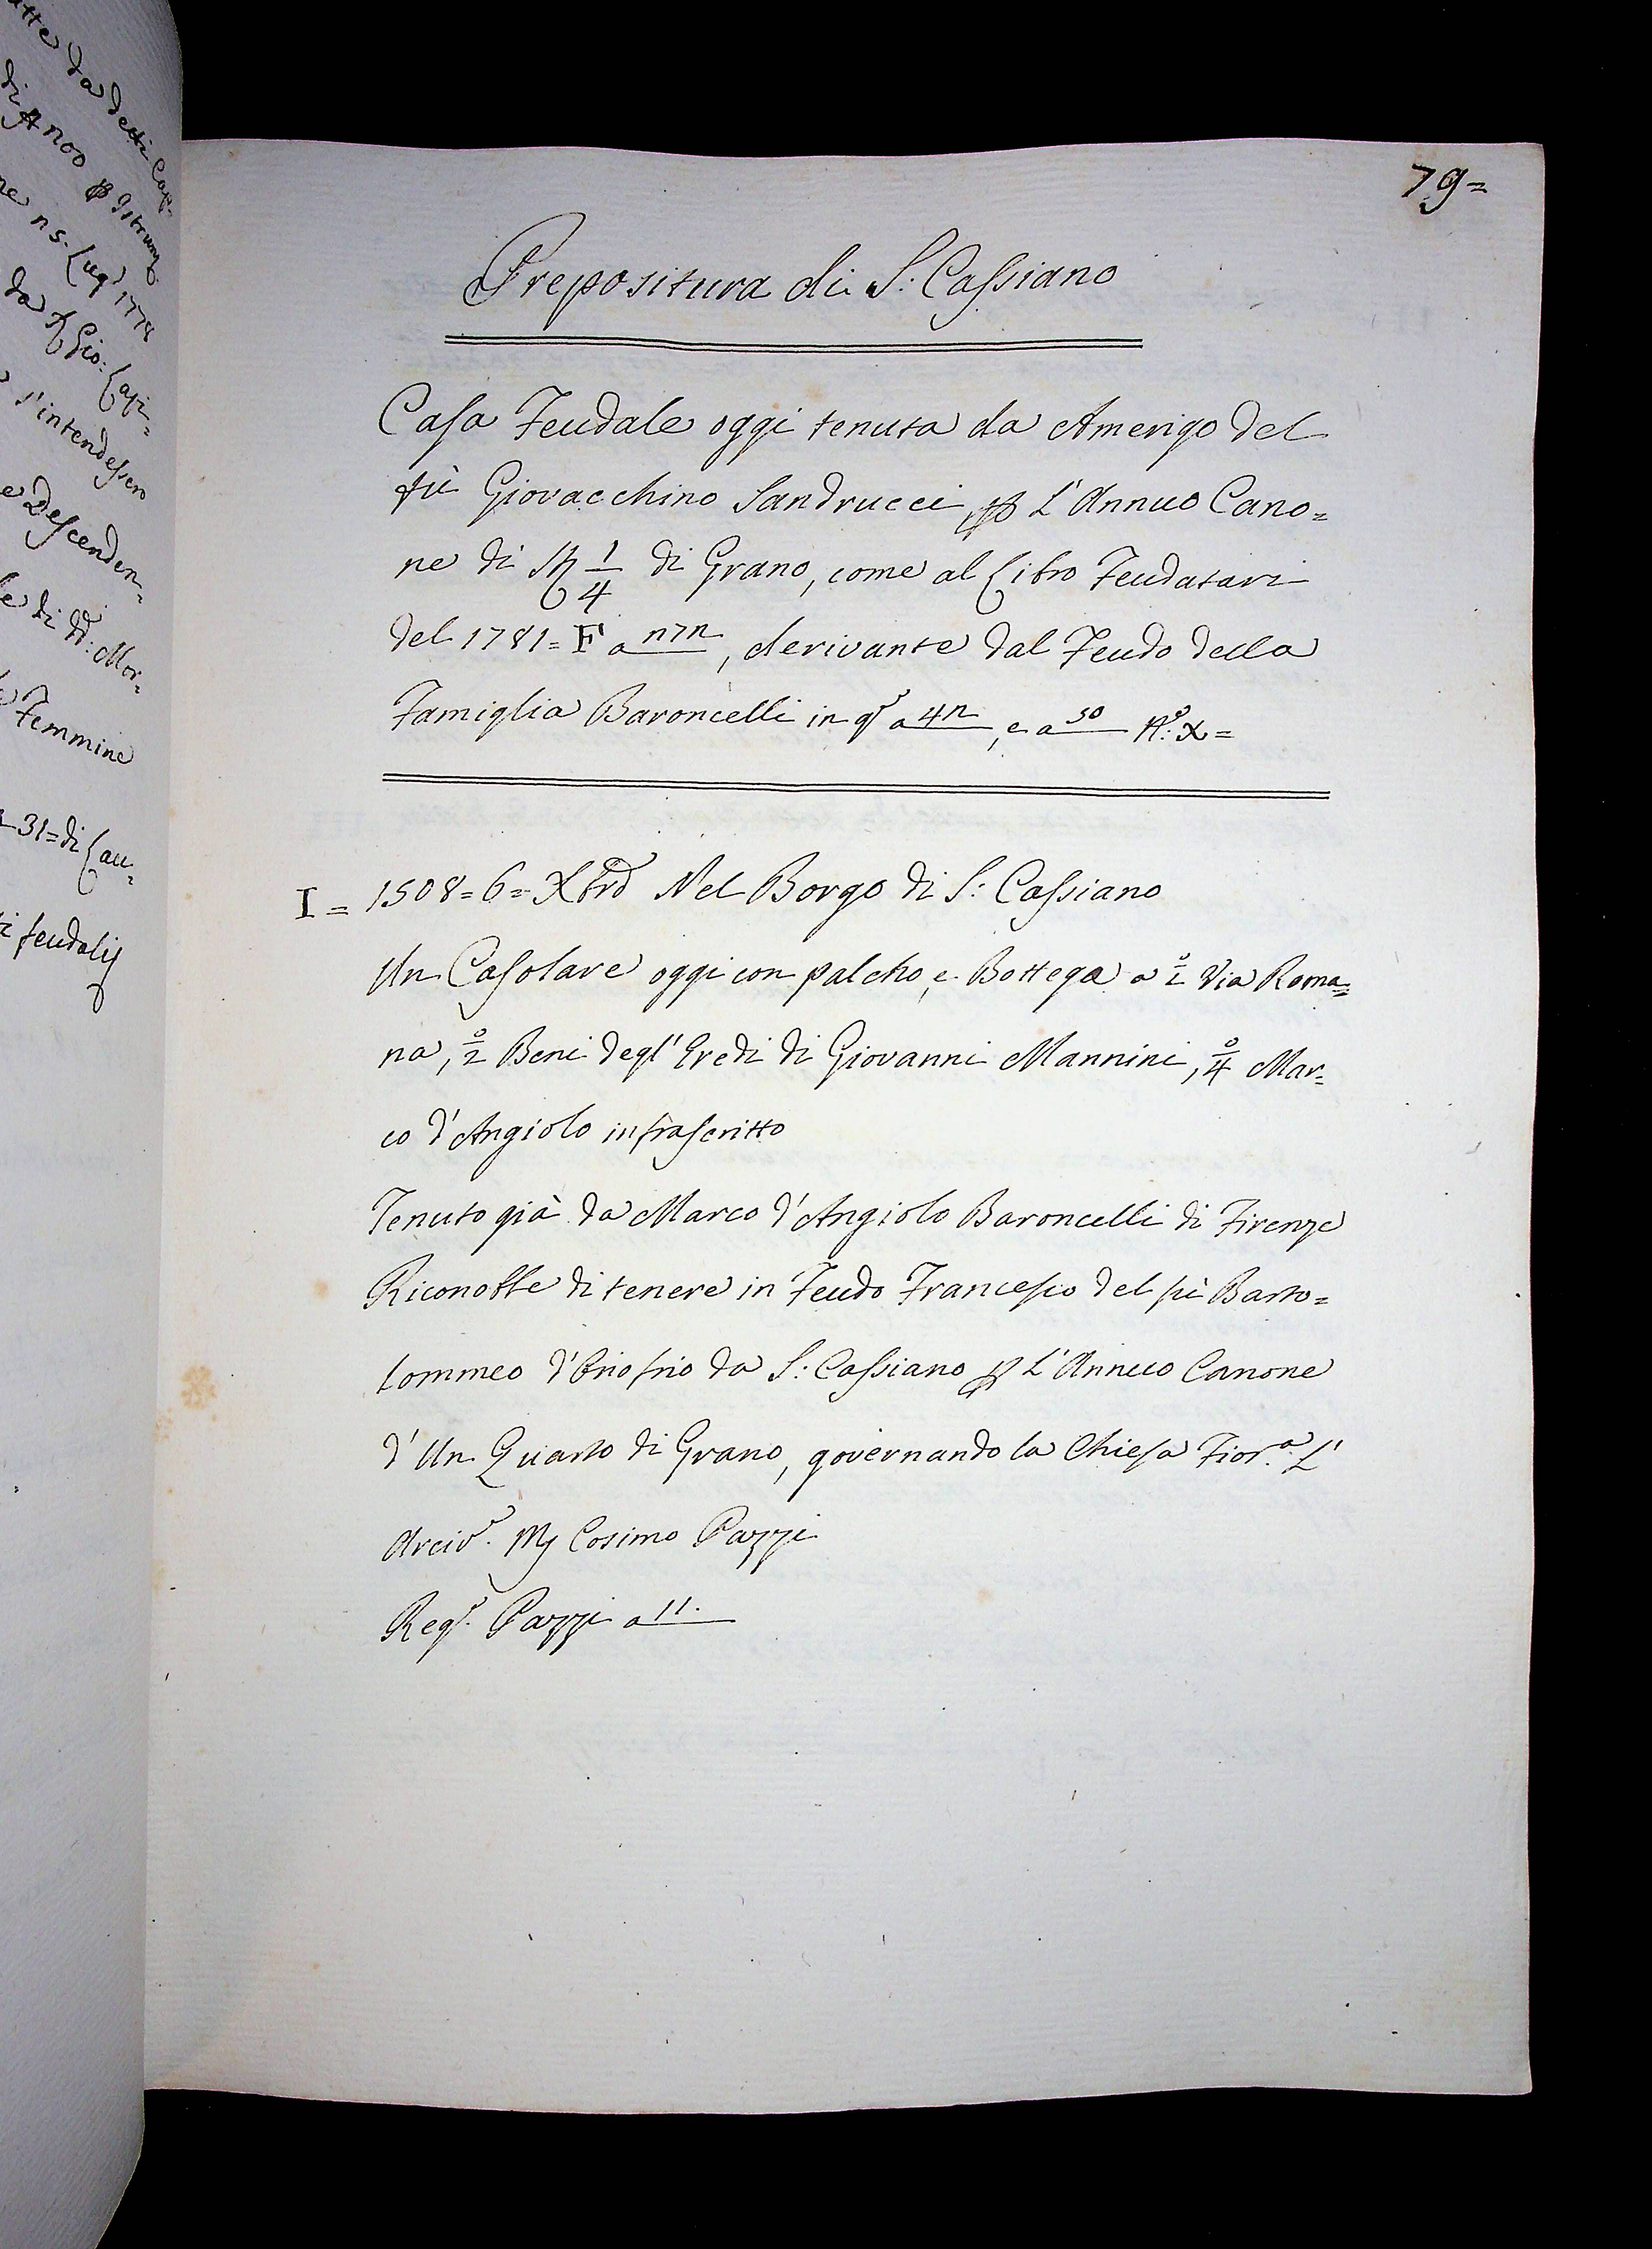 79=
Prepositura di S: Cassiano
Casa Feudale oggi tenuta da Amerigo del
fù Giovacchino Sandrucci p L'Annuo Cano=
ne di St 1/4 di Grano, come al Libro Feudatari
del 1781= F a n7n, derivante dal Feudo della
Famiglia Baroncelli in q° a 4n, e a 50 N°: X=
I= 1508= 6= Xbre Nel Borgo di S: Cassiano
Un Casolare oggi con palcho, e Bottega a 1° Via Roma=
na, 2° Beni degl' Eredi di Giovanni Mannini, 4° Mar=
co d'Angiolo infrascritto
Tenuto già da Marco d'Angiolo Baroncelli di Firenze
Riconobbe di tenere in Feudo Francesco del fù Barto=
lommeo d'Onofrio da S: Cassiano p L'Annuo Canone
d'Un Quarto di Grano, governando la Chiesa Fior.a L'
Arciv.° Cosimo Pazzi
Reg.° Pazzi a 11.
atte da detti Cap=
s'intendessero
e Descenden=
le di d°: Mor=
Femmine
31= di Lau=
feudalij